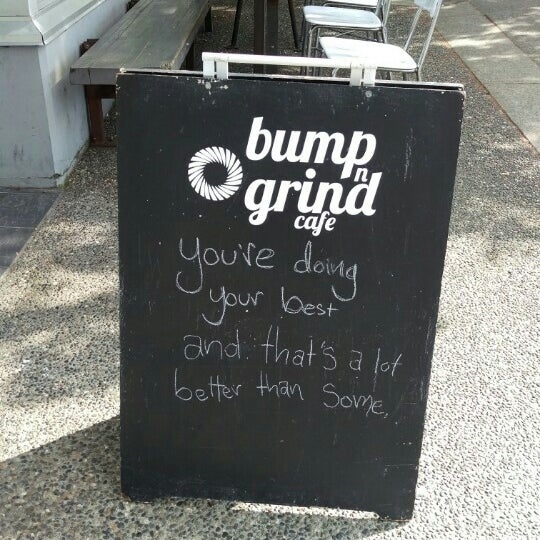 bump
n
grind
cafe
you're doing
your best
and that's a lot
better than some.